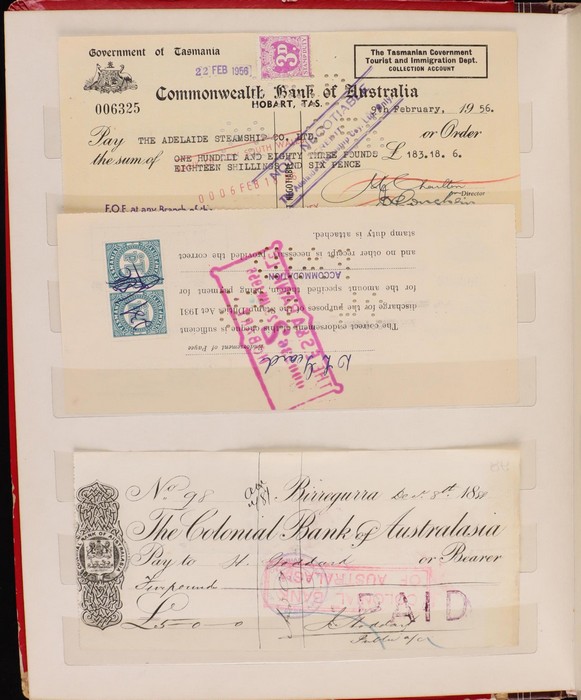 Government of Tasmania
22 FEB 1956
3D
The Tasmanian Government
Tourist and Immigration Dept.
COLLECTION ACCOUNT
006325
Commonwealth Bank of Australia
HOBART, TAS.
9th February, 1956.
Pay THE ADELAIDE STEAMSHIP CO. LTD. or Order
the sum of ONE HUNDRED AND EIGHTY THREE POUNDS £ 183.18. 6.
EIGHTEEN SHILLINGS AND SIX PENCE
NOT NEGOTIABLE
NEGOTIABLE
Director
F.O.E. at any Branch of the
The correct endorsement of this cheque is sufficient
discharge for the purposes of the Stamp Duties Act 1931
for the amount specified therein, being payment for
ACCOMMODATION
and no other receipt is necessary provided the correct
stamp duty is attached.
Endorsement of Payee
No. 98
Birregurra Dec. 8th 188
The Colonial Bank of Australasia
Pay to H. Goddard or Bearer
Five pounds
COLONIAL BANK
OF AUSTRALASIA
£5-0-0
PAID